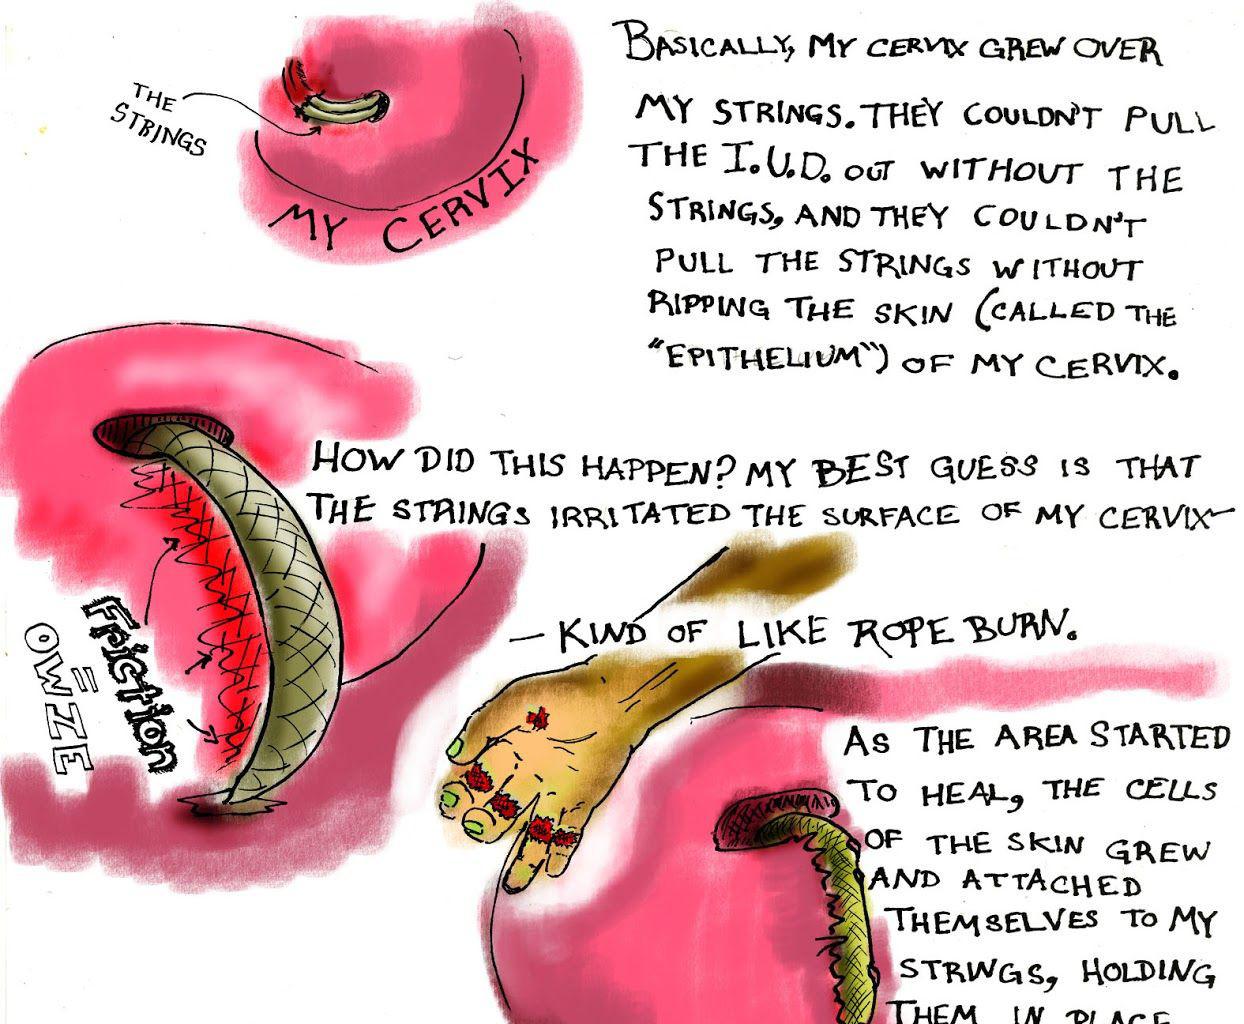 THE
STRINGS
MY CERVIX
BASICALLY, MY CERVIX GREW OVER
MY STRINGS. THEY COULDN'T PULL
THE I.U.D. OUT WITHOUT THE
STRINGS, AND THEY COULDN'T
PULL THE STRINGS WITHOUT
RIPPING THE SKIN (CALLED THE
"EPITHELIUM") OF MY CERVIX.
HOW DID THIS HAPPEN? MY BEST GUESS IS THAT
THE STRINGS IRRITATED THE SURFACE OF MY CERVIX—
— KIND OF LIKE ROPE BURN.
Friction
=
OWZE
AS THE AREA STARTED
TO HEAL, THE CELLS
OF THE SKIN GREW
AND ATTACHED
THEMSELVES TO MY
STRINGS, HOLDING
THEM IN PLACE